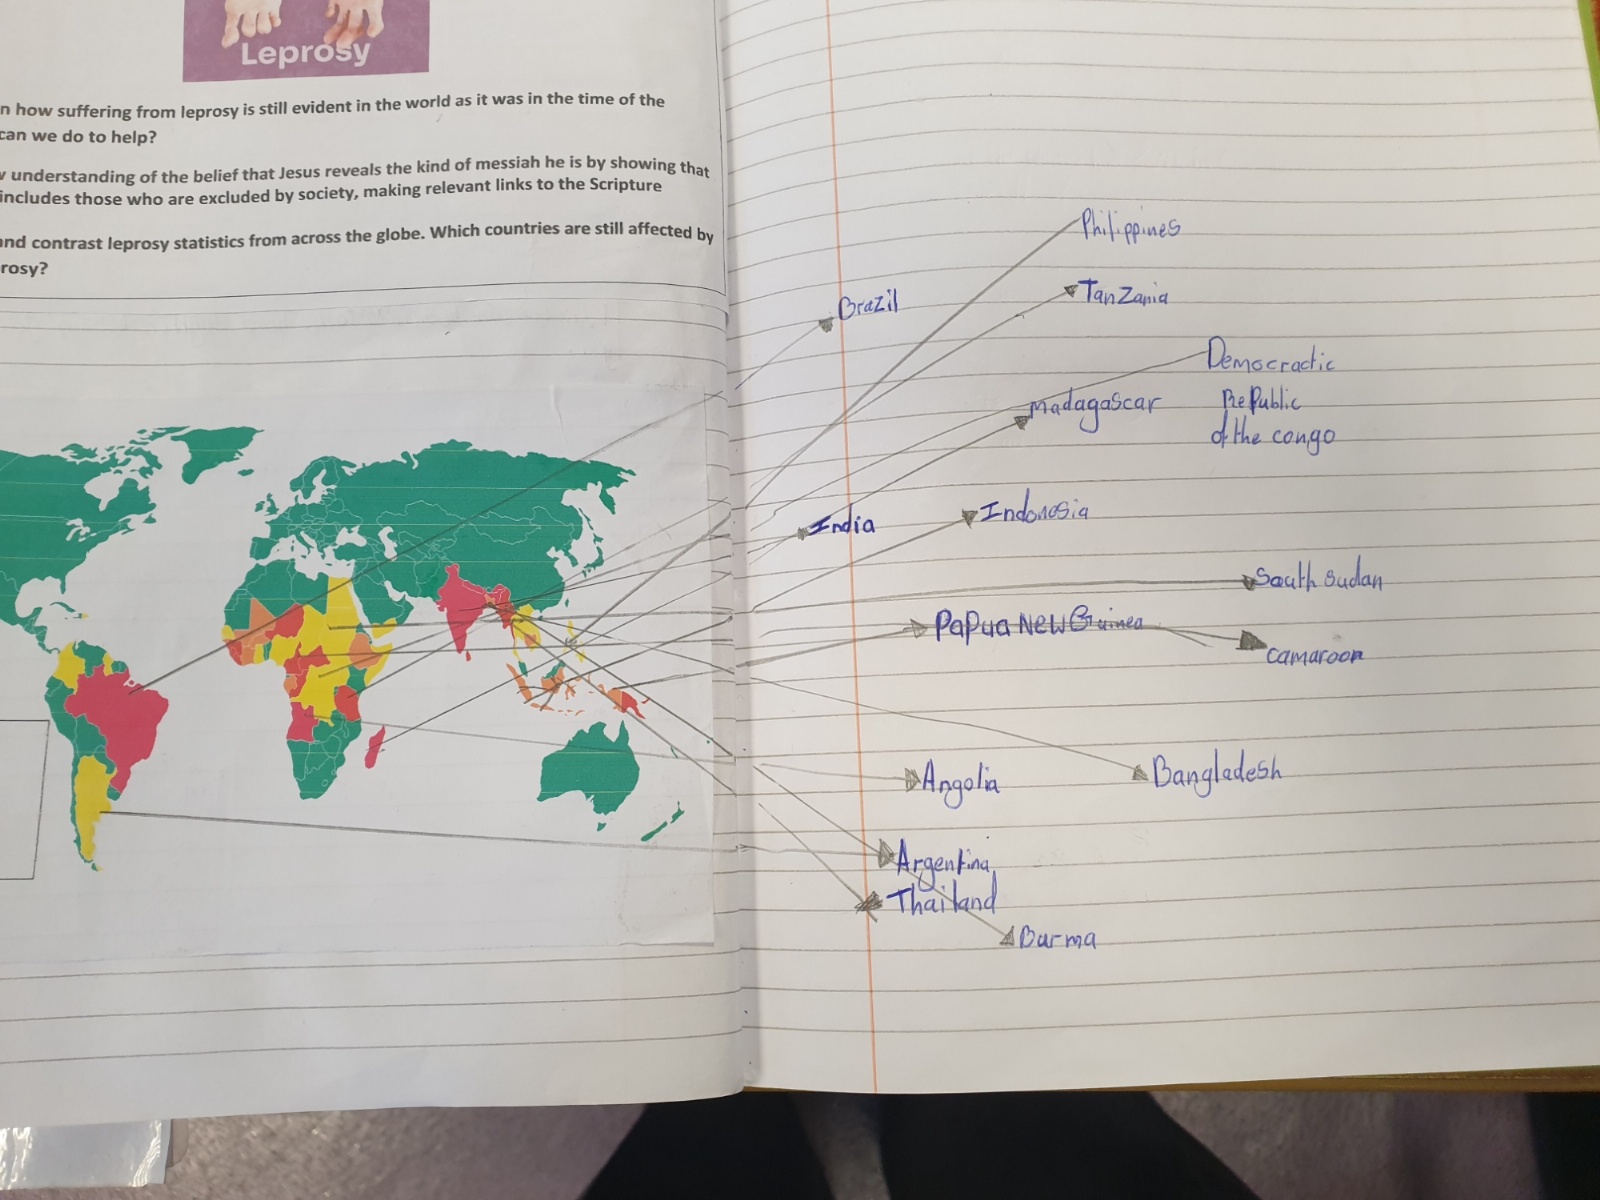 Leprosy
n how suffering from leprosy is still evident in the world as it was in the time of the
can we do to help?
understanding of the belief that Jesus reveals the kind of messiah he is by showing that
includes those who are excluded by society, making relevant links to the Scripture
and contrast leprosy statistics from across the globe. Which countries are still affected by
rosy?
Philippines
TanZania
Brazil
Democractic
RePublic
of the congo
madagascar
India
Indonesia
South Sudan
PaPua New Guinea
Camaroon
Angolia
Bangladesh
Argentina
Thailand
Burma